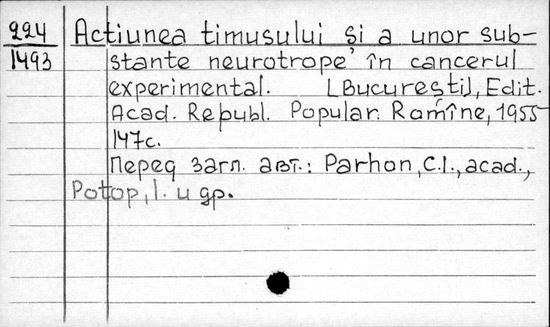 224 Acţiunea timusului şi a unor sub-
1493 stante neurotrope în cancerul
experimental. [Bucureşti], Edit.
Acad. Republ. Popular. Romîne, 1955
147с.
Перед загл. авт.: Parhon, C.I., acad.,
Potop, I. и др.